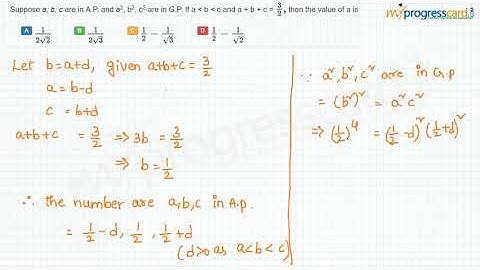 Suppose a, b, c are in A.P. and a², b², c² are in G.P. If a < b < c and a + b + c = 3/2, then the value of a is
myprogresscard
A 1/2√2 B 1/2√3 C 1/2 - 1/√3 D 1/2 - 1/√2
Let b=a+d, given a+b+c = 3/2
a = b-d
c = b+d
a+b+c = 3/2 ⇒ 3b = 3/2
⇒ b = 1/2
∴ the number are a,b,c in A.p.
= 1/2 -d, 1/2, 1/2 +d
(d>0 as a<b<c)
∵ a², b², c² are in G.p
= (b²)² = a²c²
⇒ (1/2)⁴ = (1/2 -d)² (1/2 +d)²